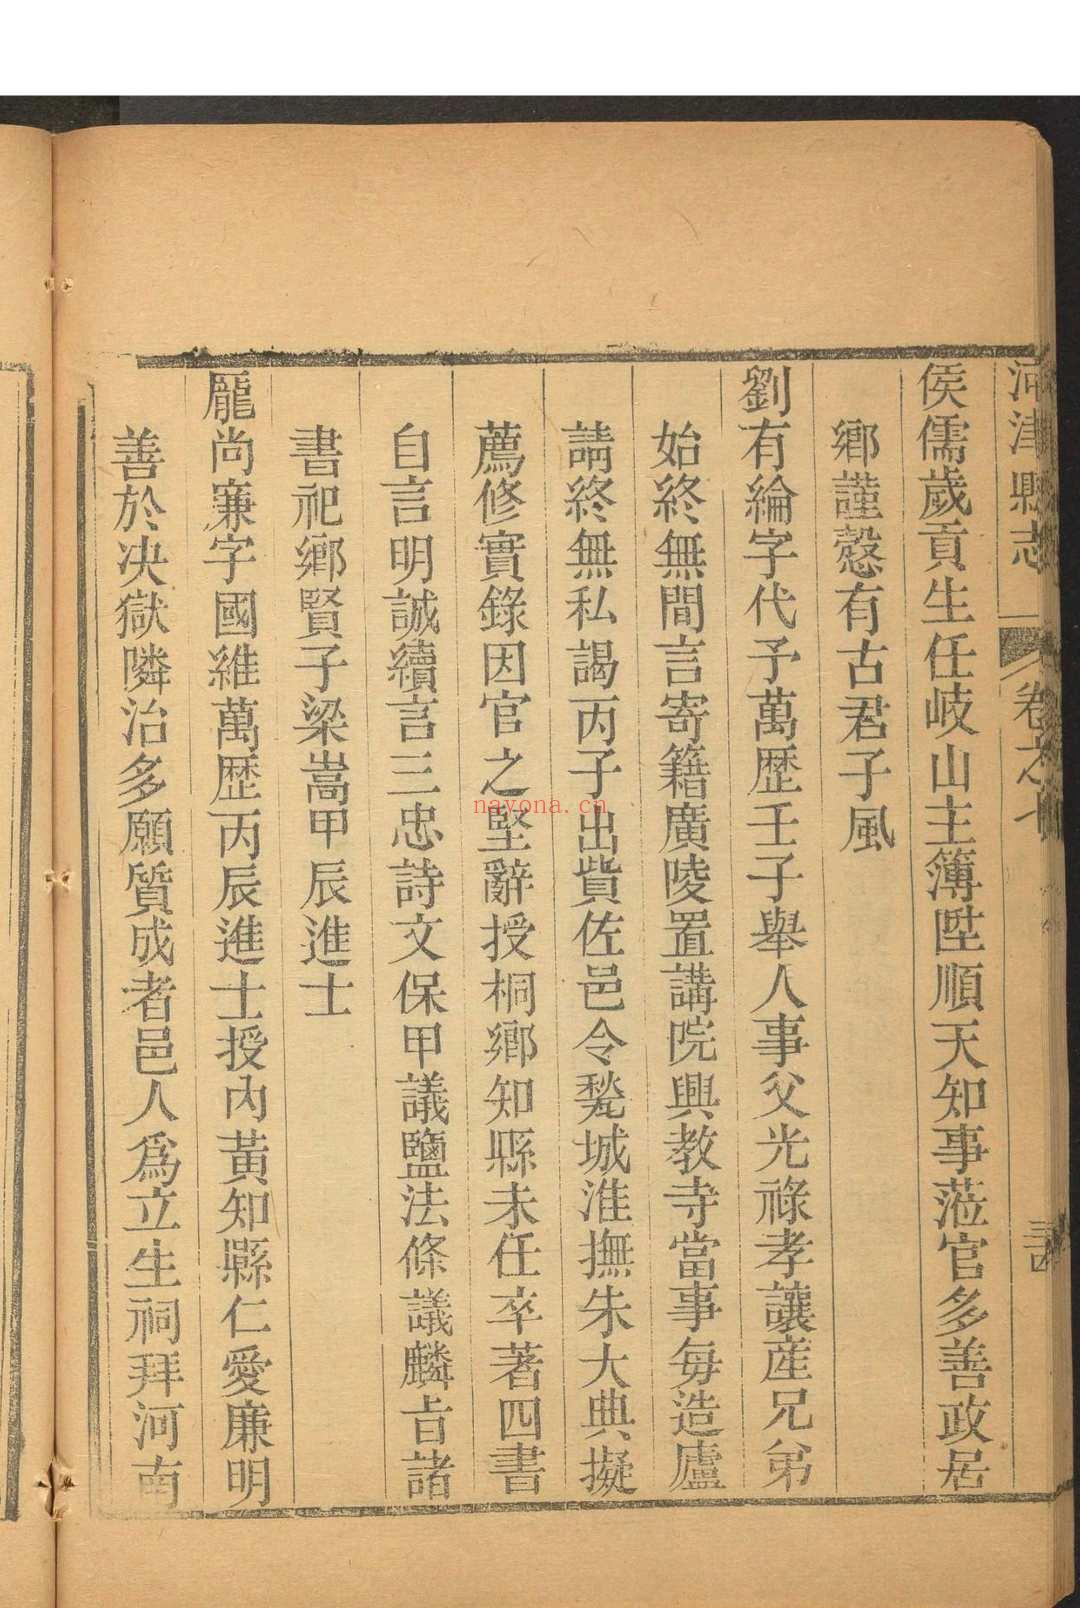 河津縣志
卷之
侯儒歲貢生任岐山主簿陞順天知事蒞官多善政居
鄉謹慤有古君子風
劉有綸字代予萬歷壬子舉人事父光祿孝讓産兄弟
始終無間言寄籍廣陵置講院興教寺當事每造廬
請終無私謁丙子出貲佐邑令甃城淮撫朱大典擬
薦修實錄因官之堅辭授桐鄉知縣未任卒著四書
自言明誠續言三忠詩文保甲議鹽法條議麟㫖諸
書祀鄉賢子梁嵩甲辰進士
龐尚廉字國維萬歷丙辰進士授内黃知縣仁愛廉明
善於決獄隣治多願質成者邑人爲立生祠拜河南
nayona.cn